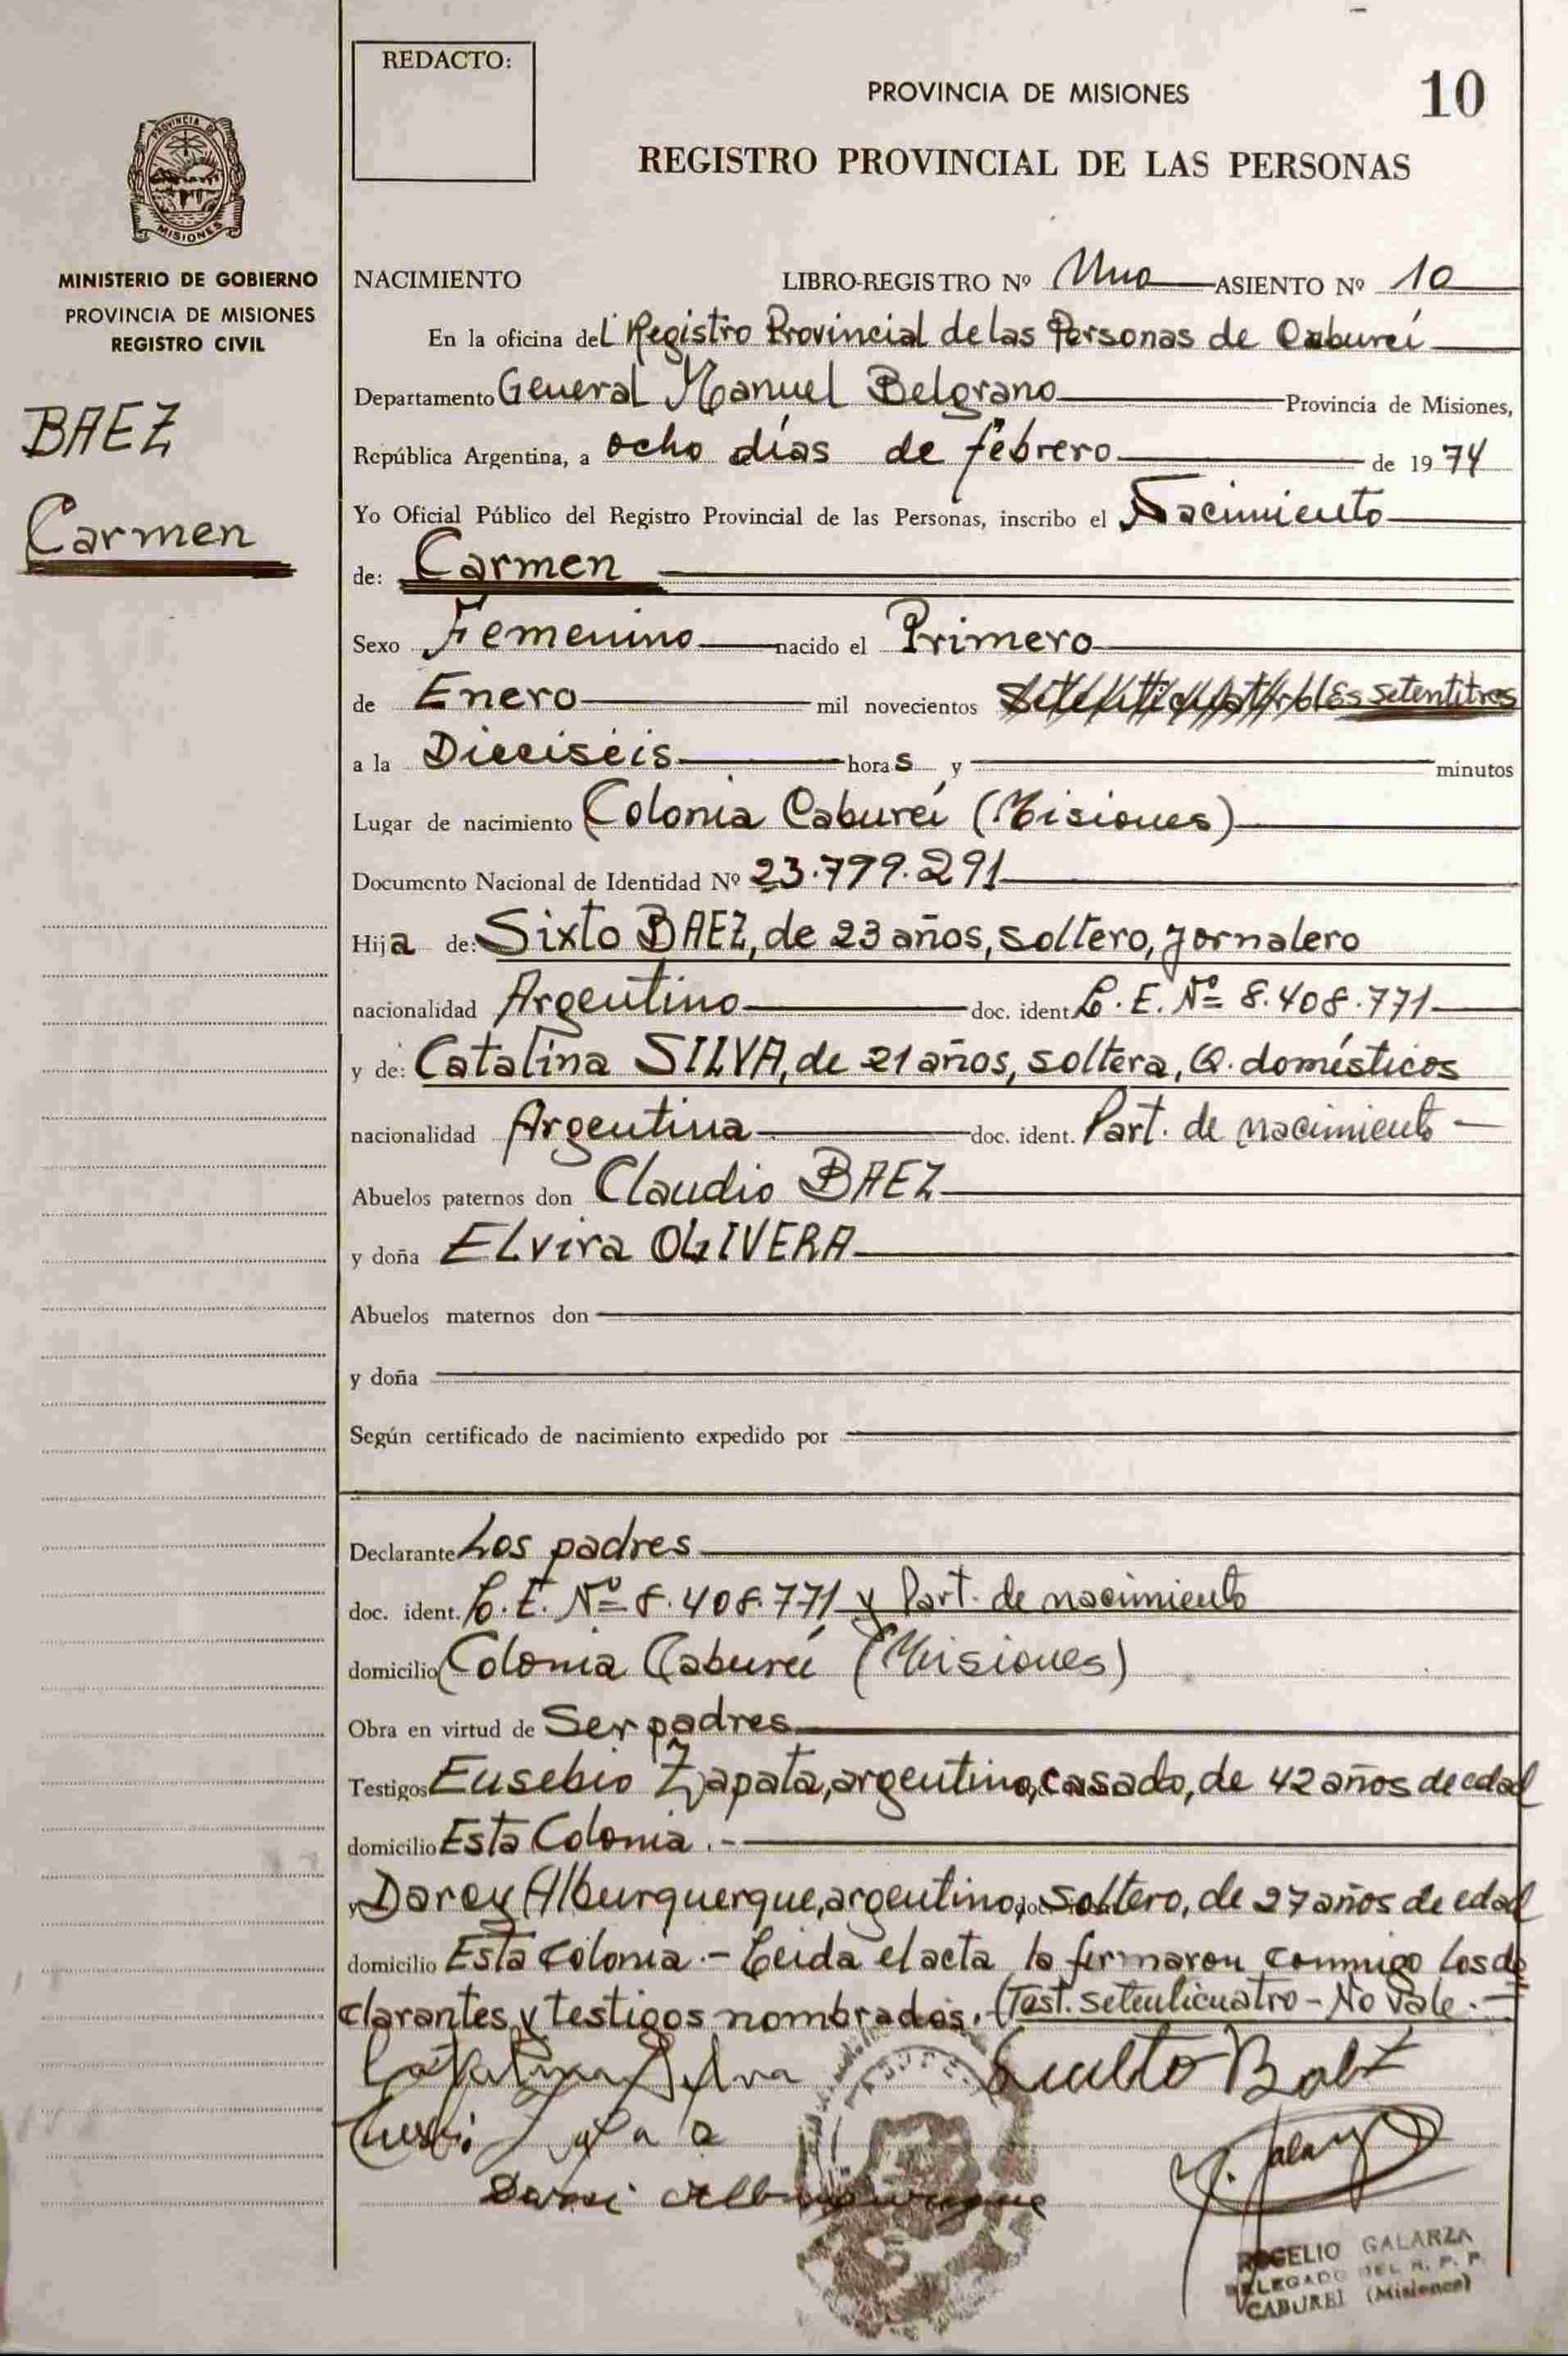 REDACTO:
PROVINCIA DE MISIONES
10
REGISTRO PROVINCIAL DE LAS PERSONAS
PROVINCIA DE
MISIONES
MINISTERIO DE GOBIERNO
PROVINCIA DE MISIONES
REGISTRO CIVIL
BAEZ
Carmen
NACIMIENTO LIBRO-REGISTRO Nº Uno ASIENTO Nº 10
En la oficina del Registro Provincial de las Personas de Caburei
Departamento General Manuel Belgrano Provincia de Misiones,
República Argentina, a ocho días de febrero de 1974
Yo Oficial Público del Registro Provincial de las Personas, inscribo el Nacimiento
de: Carmen
Sexo Femenino nacido el Primero
de Enero mil novecientos setentitres
a la Dieciséis horas y minutos
Lugar de nacimiento Colonia Caburei (Misiones)
Documento Nacional de Identidad Nº 23.799.291
Hija de: Sixto BAEZ, de 23 años, soltero, jornalero
nacionalidad Argentino doc. ident. L. E. Nº 8.408.771
y de: Catalina SILVA, de 21 años, soltera, Q. domésticos
nacionalidad Argentina doc. ident. Part. de nacimiento
Abuelos paternos don Claudio BAEZ
y doña Elvira OLIVERA
Abuelos maternos don
y doña
Según certificado de nacimiento expedido por
Declarante Los padres
doc. ident. L. E. Nº 8.408.771 y Part. de nacimiento
domicilio Colonia Caburei (Misiones)
Obra en virtud de Ser padres
Testigos Eusebio Zapata, argentino, casado, de 42 años de edad
domicilio Esta Colonia.-
y Darcy Alburquerque, argentino, soltero, de 27 años de edad
domicilio Esta Colonia.- Leida el acta la firmaron conmigo los de
clarantes y testigos nombrados. (Test. setenticuatro - No vale.-
Catalina Silva
ROGELIO GALARZA
DELEGADO DEL R. P. P.
CABUREI (Misiones)